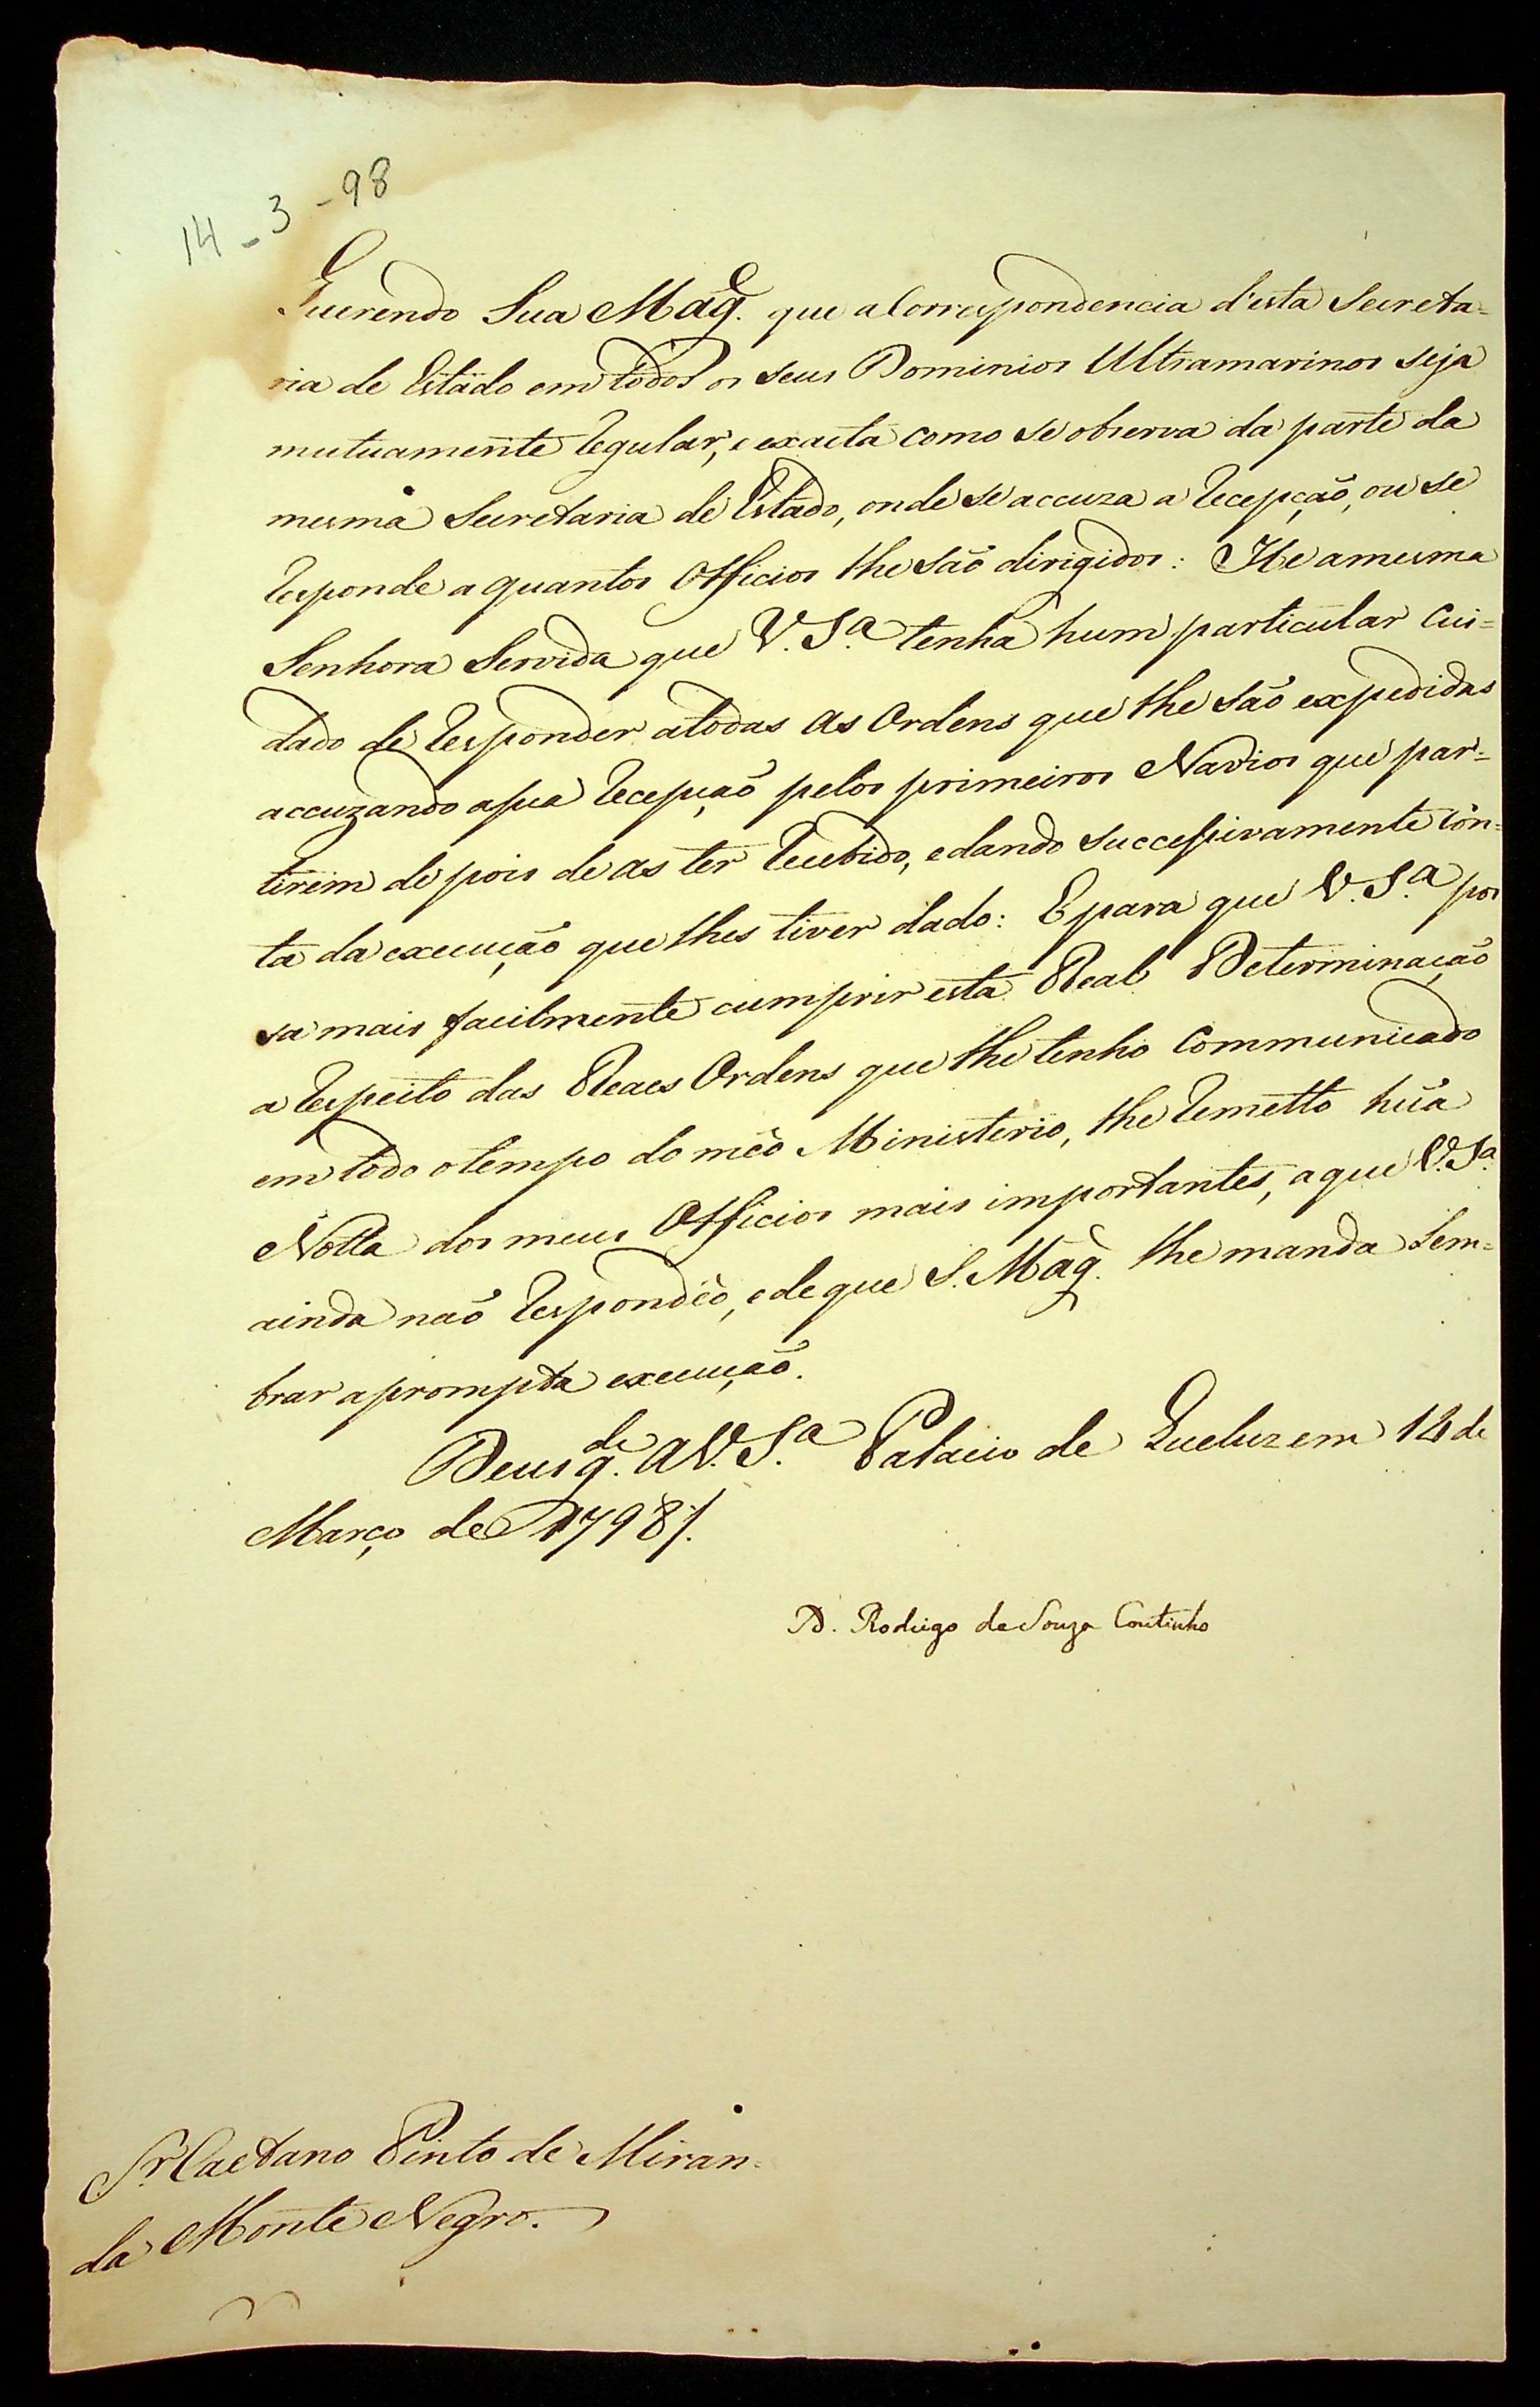 14-3-98
Querendo Sua Mag.e que a Correspondencia d'esta Secreta=
ria de Estado em todos os seus Dominios Ultramarinos seja
mutuamente regular, e exacta como se observa da parte da
mesma Secretaria de Estado, onde se accuza a recepção, ou se
responde a quantos Officios lhe são dirigidos: He a mesma
Senhora Servida que V. S.a tenha hum particular Cui=
dado de responder a todas as Ordens que lhe são expedidas
accuzando a sua recepção pelos primeiros Navios que par=
tirem depois de as ter recebido, e dando successivamente con=
ta da execução que lhes tiver dado: E para que V. S.a pos
sa mais facilmente cumprir esta Real Determinação
a respeito das Reaes Ordens que lhe tenho Communicado
em todo o tempo do mêo Ministerio, lhe remetto hũa
Notta dos meus Officios mais importantes, a que V. S.a
ainda não respondêo, e de que S. Mag.e lhe manda Lem=
brar a prompta execução.
Deus g.de a V. S.a Palacio de Queluz em 14 de
Março de 1798/.
D. Rodrigo de Souza Coutinho
S.r Caetano Pinto de Miran=
da Monte Negro.